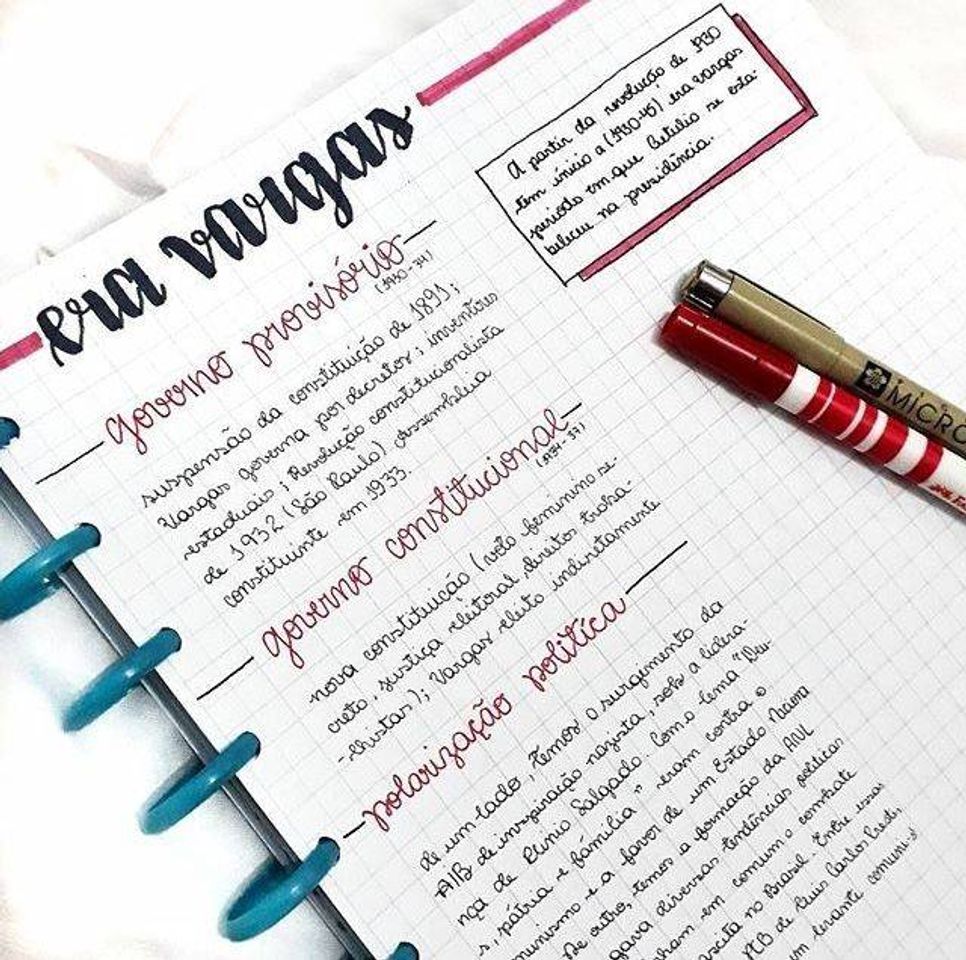 era vargas
A partir da revolução de 1930
tem início a (1930-45) era vargas
período em que Getulio se esta-
beleceu na presidência.
governo provisório
(1930-34)
suspensão da constituição de 1891;
Vargas governa por decretos; inventores
estaduais; Revolução constitucionalista
de 1932 (São Paulo) Assembleia
constituinte em 1933.
governo constitucional
(1934-37)
nova constituição (voto feminino se-
creto, justiça eleitoral, direitos traba-
-lhistas); Vargas eleito indiretamente
polarização política
de um lado, temos o surgimento da
AIB de inspiração nazista, sob a lidera-
nça de Plinio Salgado. Com o lema "Deu-
s, pátria e família", eram contra o
munismo e a favor de um Estado
De outro, temos a formação da ANL
gava diversas tendências políticas
nham em comum o combate
ascista no Brasil. Entre essas
PCB de Luis Carlos
um levante comunis
MICRO